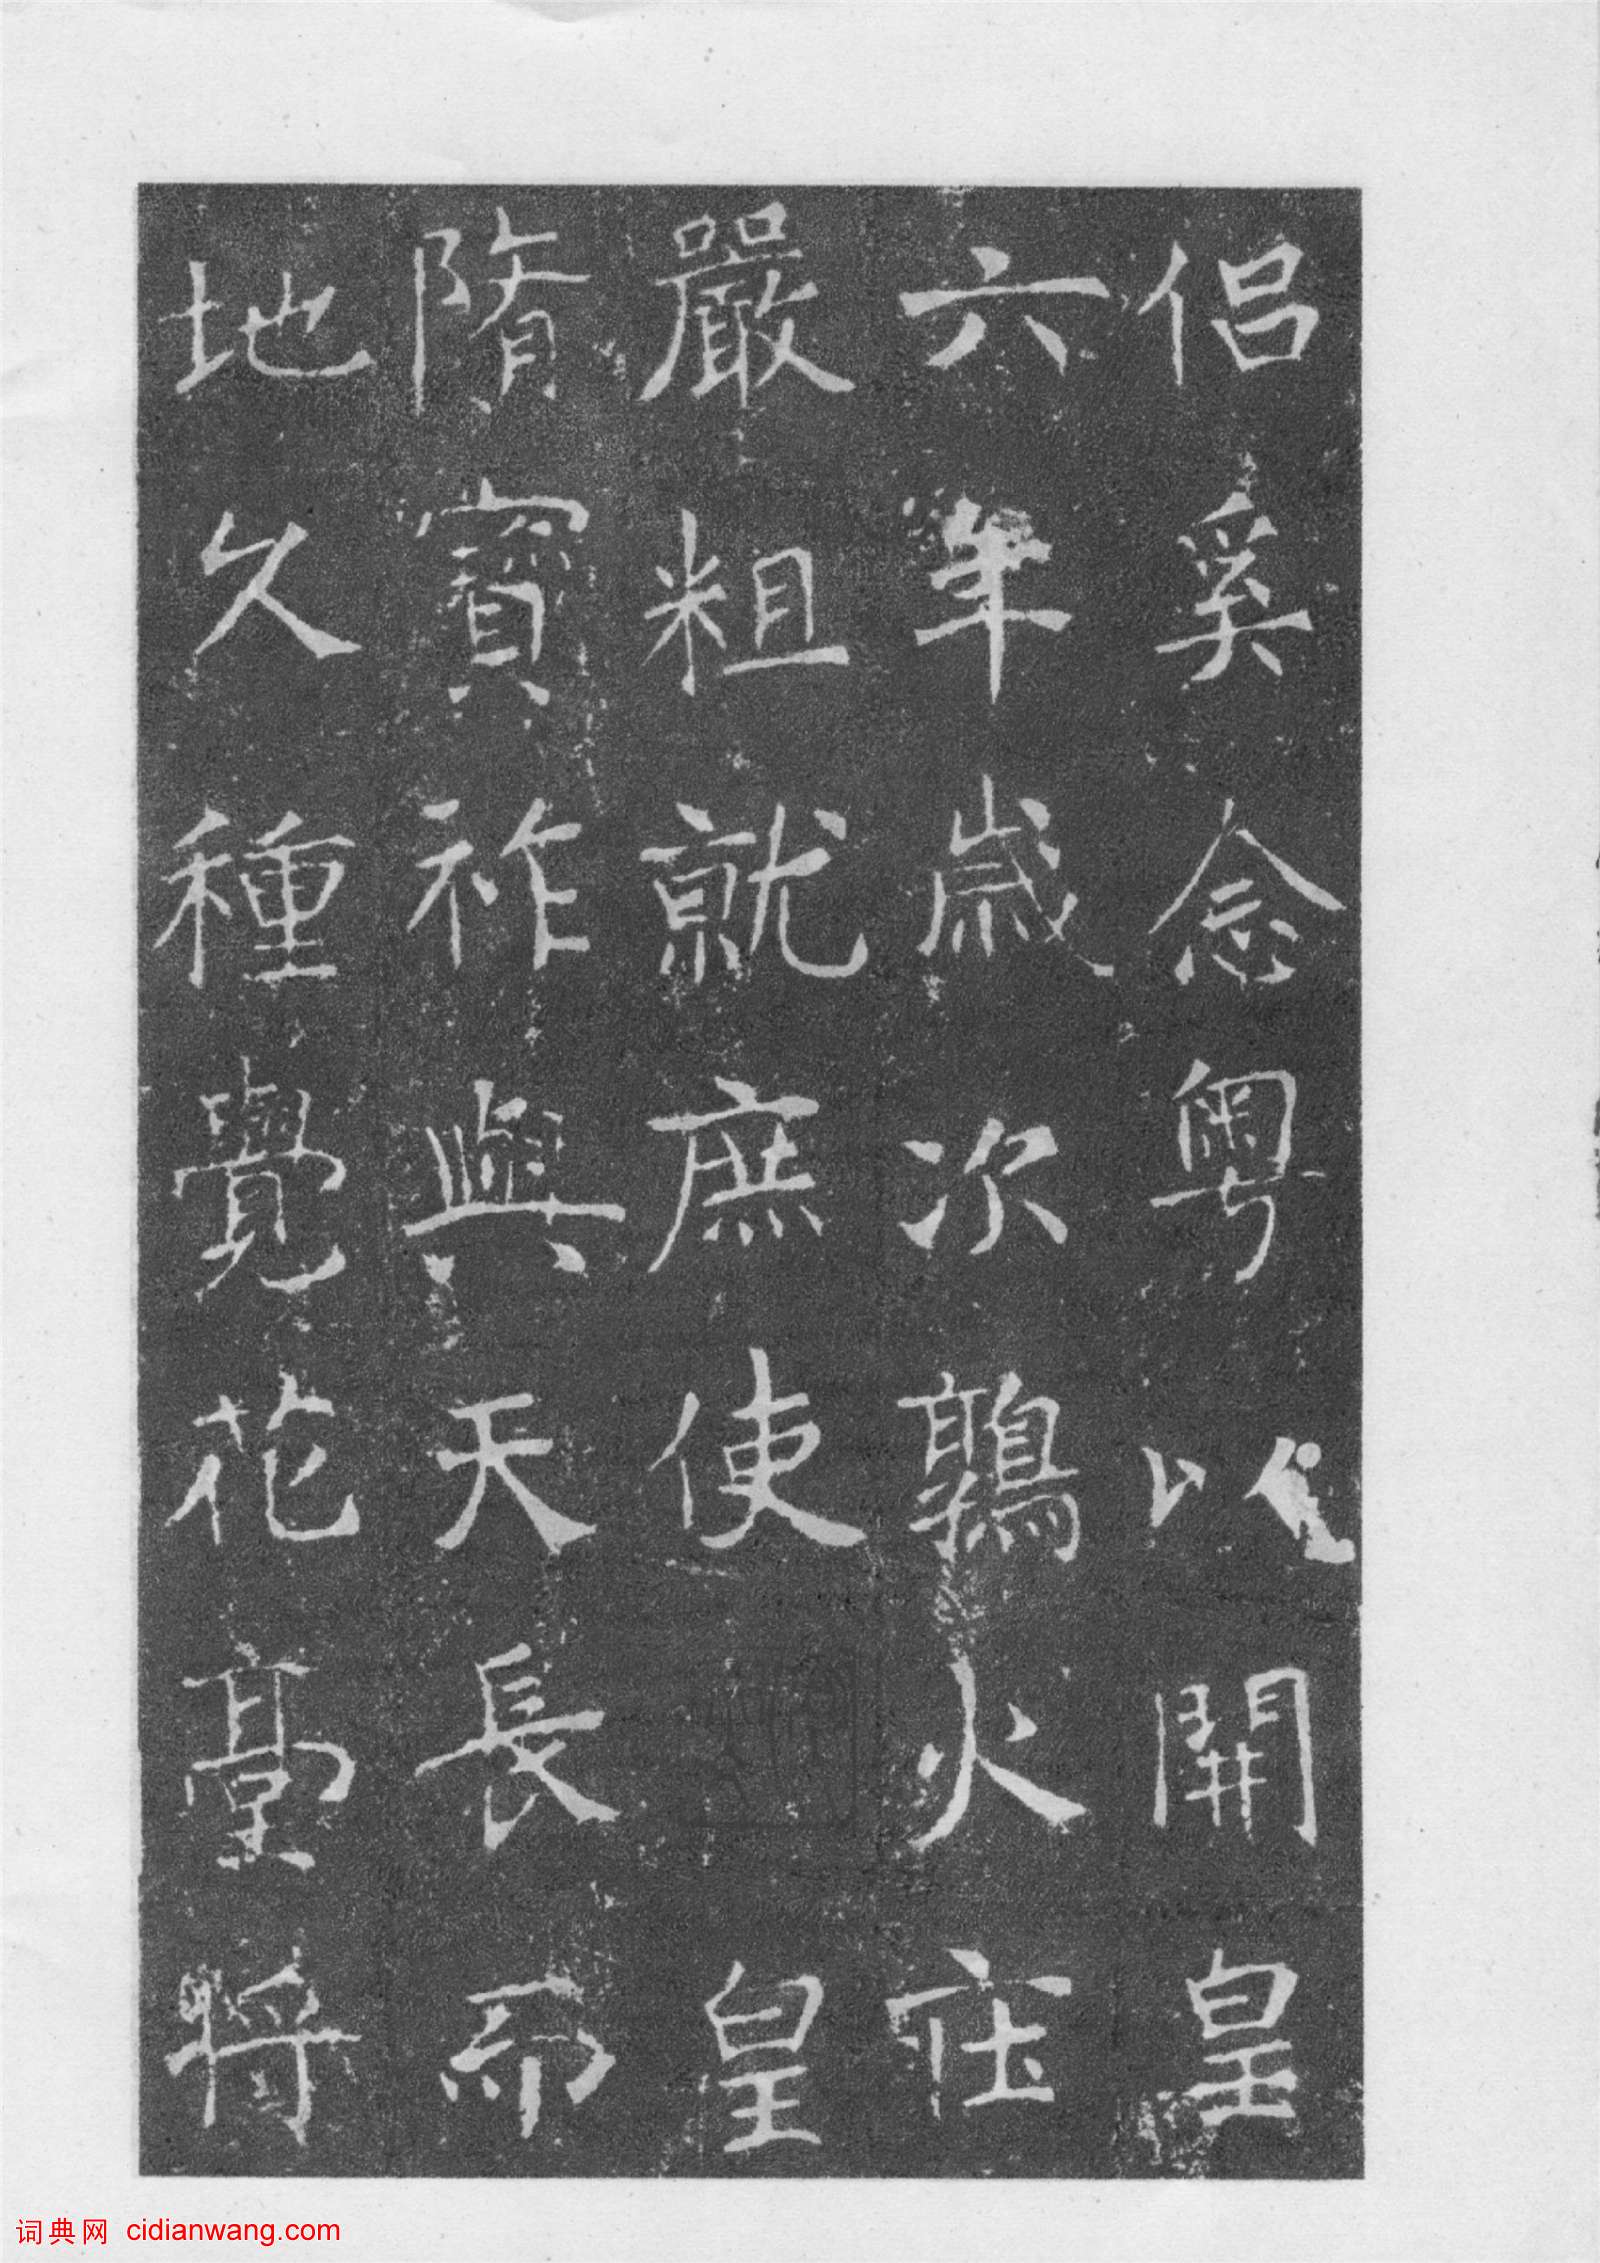 侣奚念粤以開皇
六年歲次鶉火庄
嚴粗就庶使皇
隋寶祚與天長而
地久種覺花臺將
词典网 cidianwang.com